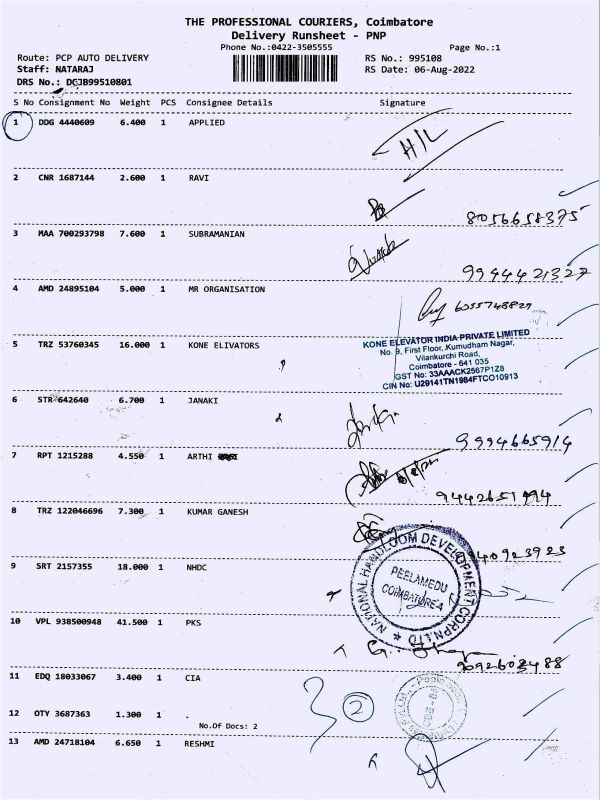 THE PROFESSIONAL COURIERS, Coimbatore
Delivery Runsheet - PNP
Phone No.:0422-3505555
Page No.:1
Route: PCP AUTO DELIVERY
RS No.: 995108
Staff: NATARAJ
RS Date: 06-Aug-2022
DRS No.: DCJB99510801
S No Consignment No Weight PCS Consignee Details Signature
1 DDG 4440609 6.400 1 APPLIED
H/L
2 CNR 1687144 2.600 1 RAVI
8056658375
3 MAA 700293798 7.600 1 SUBRAMANIAN
9944421327
4 AMD 24895104 5.000 1 MR ORGANISATION
5 TRZ 53760345 16.000 1 KONE ELIVATORS
KONE ELEVATOR INDIA PRIVATE LIMITED
No. 9, First Floor, Kumudham Nagar,
Vilankurchi Road,
Coimbatore - 641 035
GST No: 33AAACK2567P1Z8
CIN No: U29141TN1984FTC010913
6 STR 642640 6.700 1 JANAKI
9994665914
7 RPT 1215288 4.550 1 ARTHI
8 TRZ 122046696 7.300 1 KUMAR GANESH
9 SRT 2157355 18.000 1 NHDC
NATIONAL HANDLOOM DEVELOPMENT CORPN.LTD
PEELAMEDU
COIMBATORE-4
10 VPL 938500948 41.500 1 PKS
11 EDQ 18033067 3.400 1 CIA
12 OTY 3687363 1.300 1 .
No.Of Docs: 2
2
13 AMD 24718104 6.650 1 RESHMI